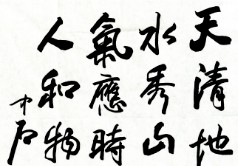 天清地
水秀山
氣應時
人和物
中石